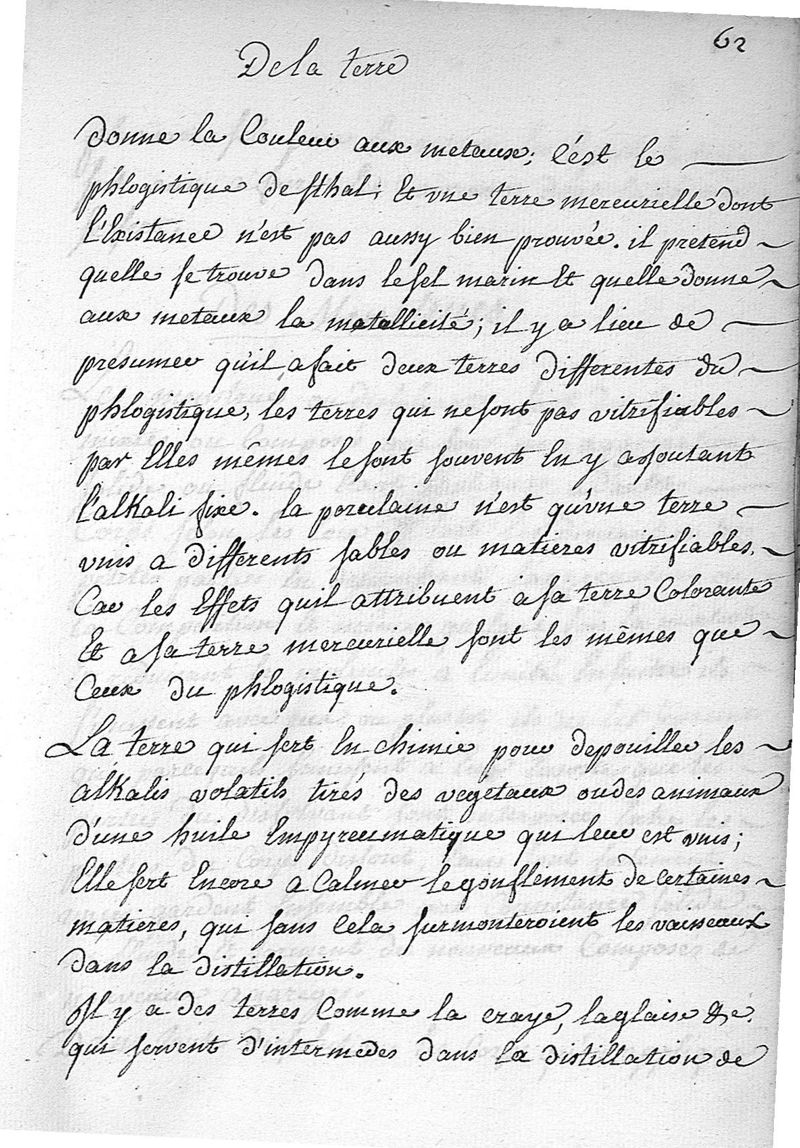 62
De la terre
donne la Couleur aux metaux; c'est le
phlogistique de sthal; Et vne terre mercurielle dont
l'Existance n'est pas aussy bien prouvée. il pretend
quelle se trouve dans le sel marin Et quelle donne
aux metaux la metallicité; il y a lieu de
présumer qu'il a fait deux terres differentes du
phlogistique, les terres qui ne sont pas vitrifiables
par Elles mêmes le sont souvent En y ajoutant
l'alkali fixe. la porcelaine n'est qu'vne terre
vnis a differents sables ou matieres vitrifiables.
Car les Effets qu'il attribuent a sa terre Colorante
Et a sa terre mercurielle sont les mêmes que
Ceux du phlogistique.
La terre qui sert En chimie pour depouiller les
alkalis volatils tirés des vegétaux ou des animaux
d'une huile Empyreumatique qui leur est vnis;
Elle sert Encore a Calmer le gonflement de certaines
matieres, qui sans Cela surmonteroient les vaisseaux
dans la distillation.
Il y a des terres Comme la craye, la glaise &c.
qui servent d'intermedes dans la distillation de